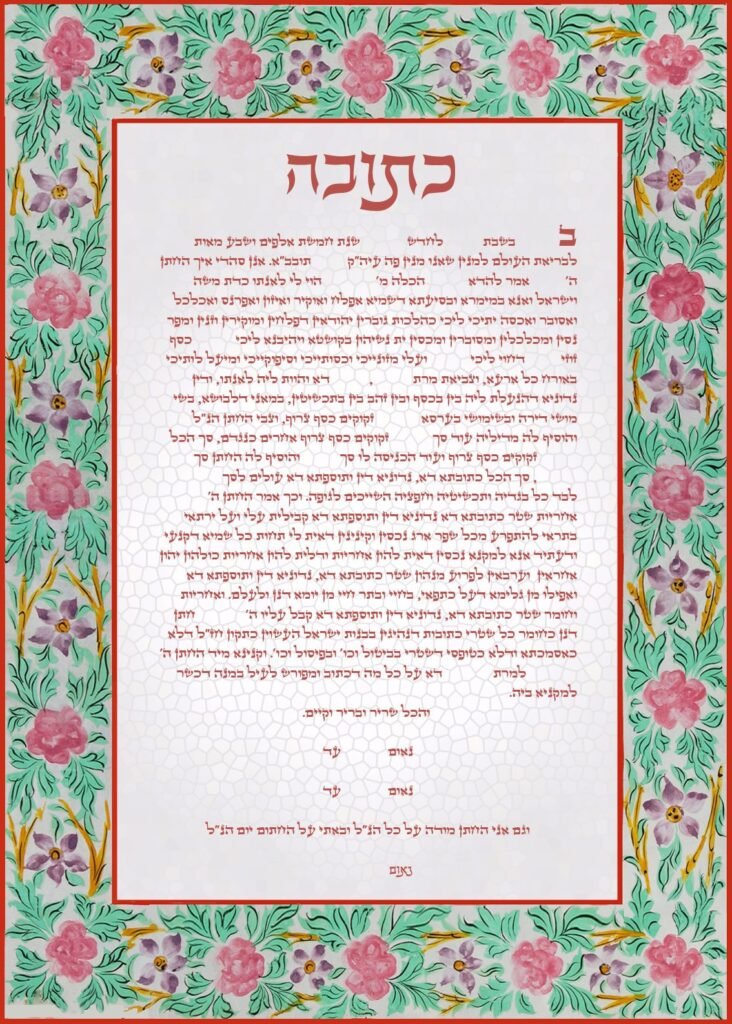 כתובה
ב בשבת לחדש שנת חמשת אלפים ושבע מאות
לבריאת העולם למנין שאנו מנין פה עיה"ק תובב"א. אנן סהדי איך החתן
ה' אמר להדא הכלה מ' הוי לי לאנתו כדת משה
וישראל ואנא במימרא ובסיעתא דשמיא אפלח ואוקיר ואיזון ואפרנס ואכלכל
ואסובר ואכסה יתיכי ליכי כהלכות גוברין יהודאין דפלחין ומוקירין וזנין ומפר
נסין ומכלכלין ומסוברין ומכסין ית נשיהון בקושטא ויהיבנא ליכי כסף
זוזי דחזי ליכי ועלי מזונייכי וכסותייכי וסיפוקייכי ומיעל לותיכי
באורח כל ארעא, וצביאת מרת , דא והוות ליה לאנתו, ודין
נדוניא דהנעלת ליה בין בכסף ובין זהב בין בתכשיטין, במאני דלבושא, בשי
מושי דירה ובשימושי בערסא זקוקים כסף צרוף, וצבי החתן הנ"ל
והוסיף לה מדיליה עוד סך זקוקים כסף צרוף אחרים כנגדם, סך הכל
זקוקים כסף צרוף ועוד הכניסה לו סך והוסיף לה החתן סך
, סך הכל כתובתא דא, נדוניא דין ותוספתא דא עולים לסך
לבד כל בגדיה ותכשיטיה וחפציה השייכים לגופה. וכך אמר החתן ה'
אחריות שטר כתובתא דא נדוניא דין ותוספתא דא קבילית עלי ועל ירתאי
בתראי להתפרע מכל שפר ארג נכסין וקינינין דאית לי תחות כל שמיא דקנאי
ודעתיד אנא למקנא נכסין דאית להון אחריות ודלית להון אחריות כולהון יהון
אחראין וערבאין לפרוע מנהון שטר כתובתא דא, נדוניא דין ותוספתא דא
ואפילו מן גלימא דעל כתפאי, בחיי ובתר חיי מן יומא דנן ולעלם. ואחריות
וחומר שטר כתובתא דא, נדוניא דין ותוספתא דא קבל עליו ה' חתן
דנן כחומר כל שטרי כתובות דנהיגין בבנות ישראל העשוין כתקון חז"ל דלא
כאסמכתא ודלא כטופסי דשטרי בביטול וכו' ובפיסול וכו'. וקנינא מיד החתן ה'
למרת דא על כל מה דכתוב ומפורש לעיל במנה דכשר
למקניא ביה.
והכל שריר ובריר וקיים.
נאום עד
נאום עד
וגם אני החתן מודה על כל הנ"ל ובאתי על החתום יום הנ"ל
נאום